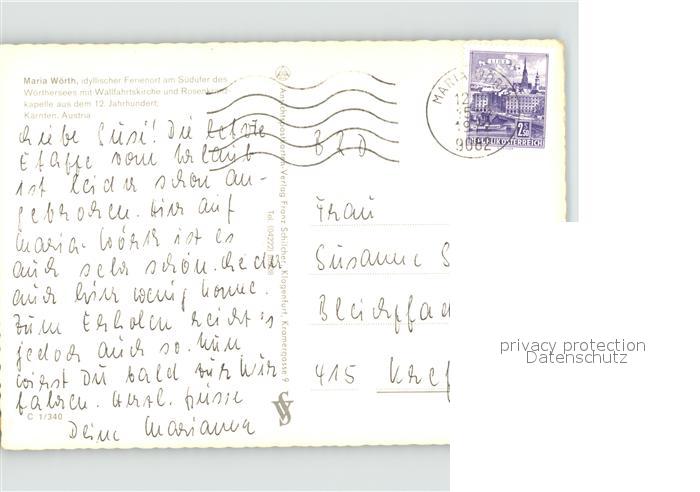 Maria Wörth, idyllischer Ferienort am Südufer des
Wörthersees mit Wallfahrtskirche und Rosenkranz-
kapelle aus dem 12. Jahrhundert.
Kärnten, Austria
Liebe Susi! Die letzte
Etappe vom Urlaub
ist leider schon an-
gebrochen. Hier auf
Maria-Wörth ist es
auch sehr schön. Leider
auch hier wenig Sonne.
Zum Erholen reicht's
jedoch auch so. Nun
wirst Du bald zur Kur
fahren. Herzl. Grüsse
Deine Marianna
C 1/340
Ansichtskarten-Verlag Franz Schilcher, Klagenfurt, Kramergasse 9
Tel. (04222)
MARIA WÖRTH
9082
2.50
REPUBLIK ÖSTERREICH
BRD
Frau
Susanne S
Bleichpfad
415 Kref
privacy protection
Datenschutz